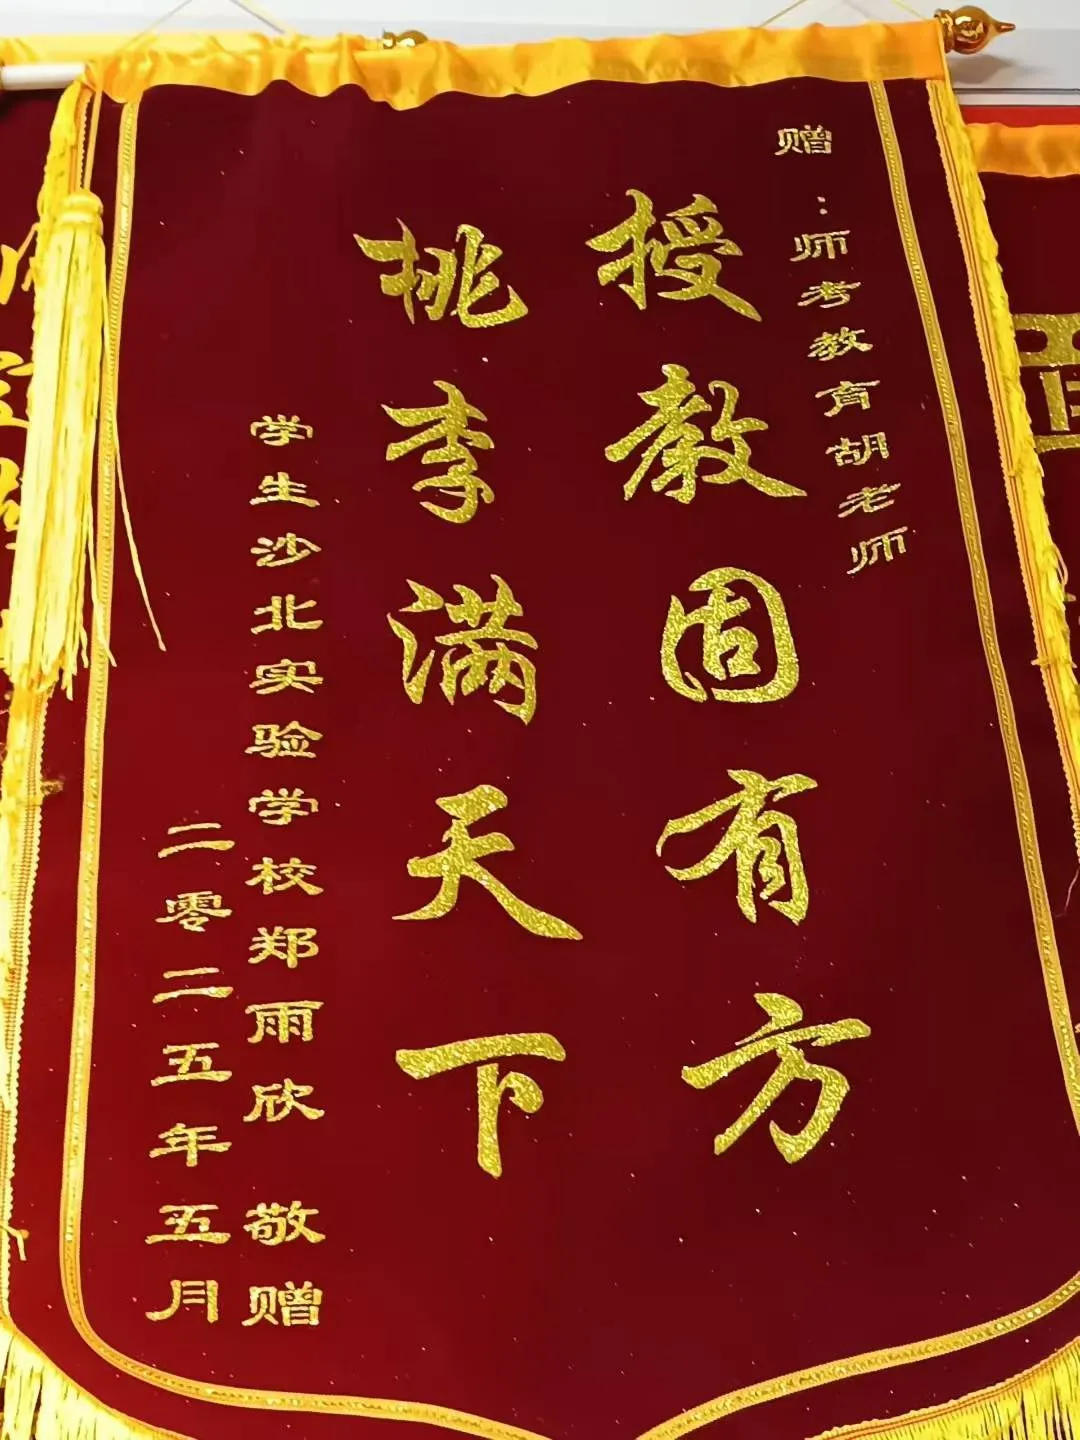 赠：师考教育胡老师
授教固有方
桃李满天下
学生沙北实验学校郑雨欣 敬赠
二零二五年五月